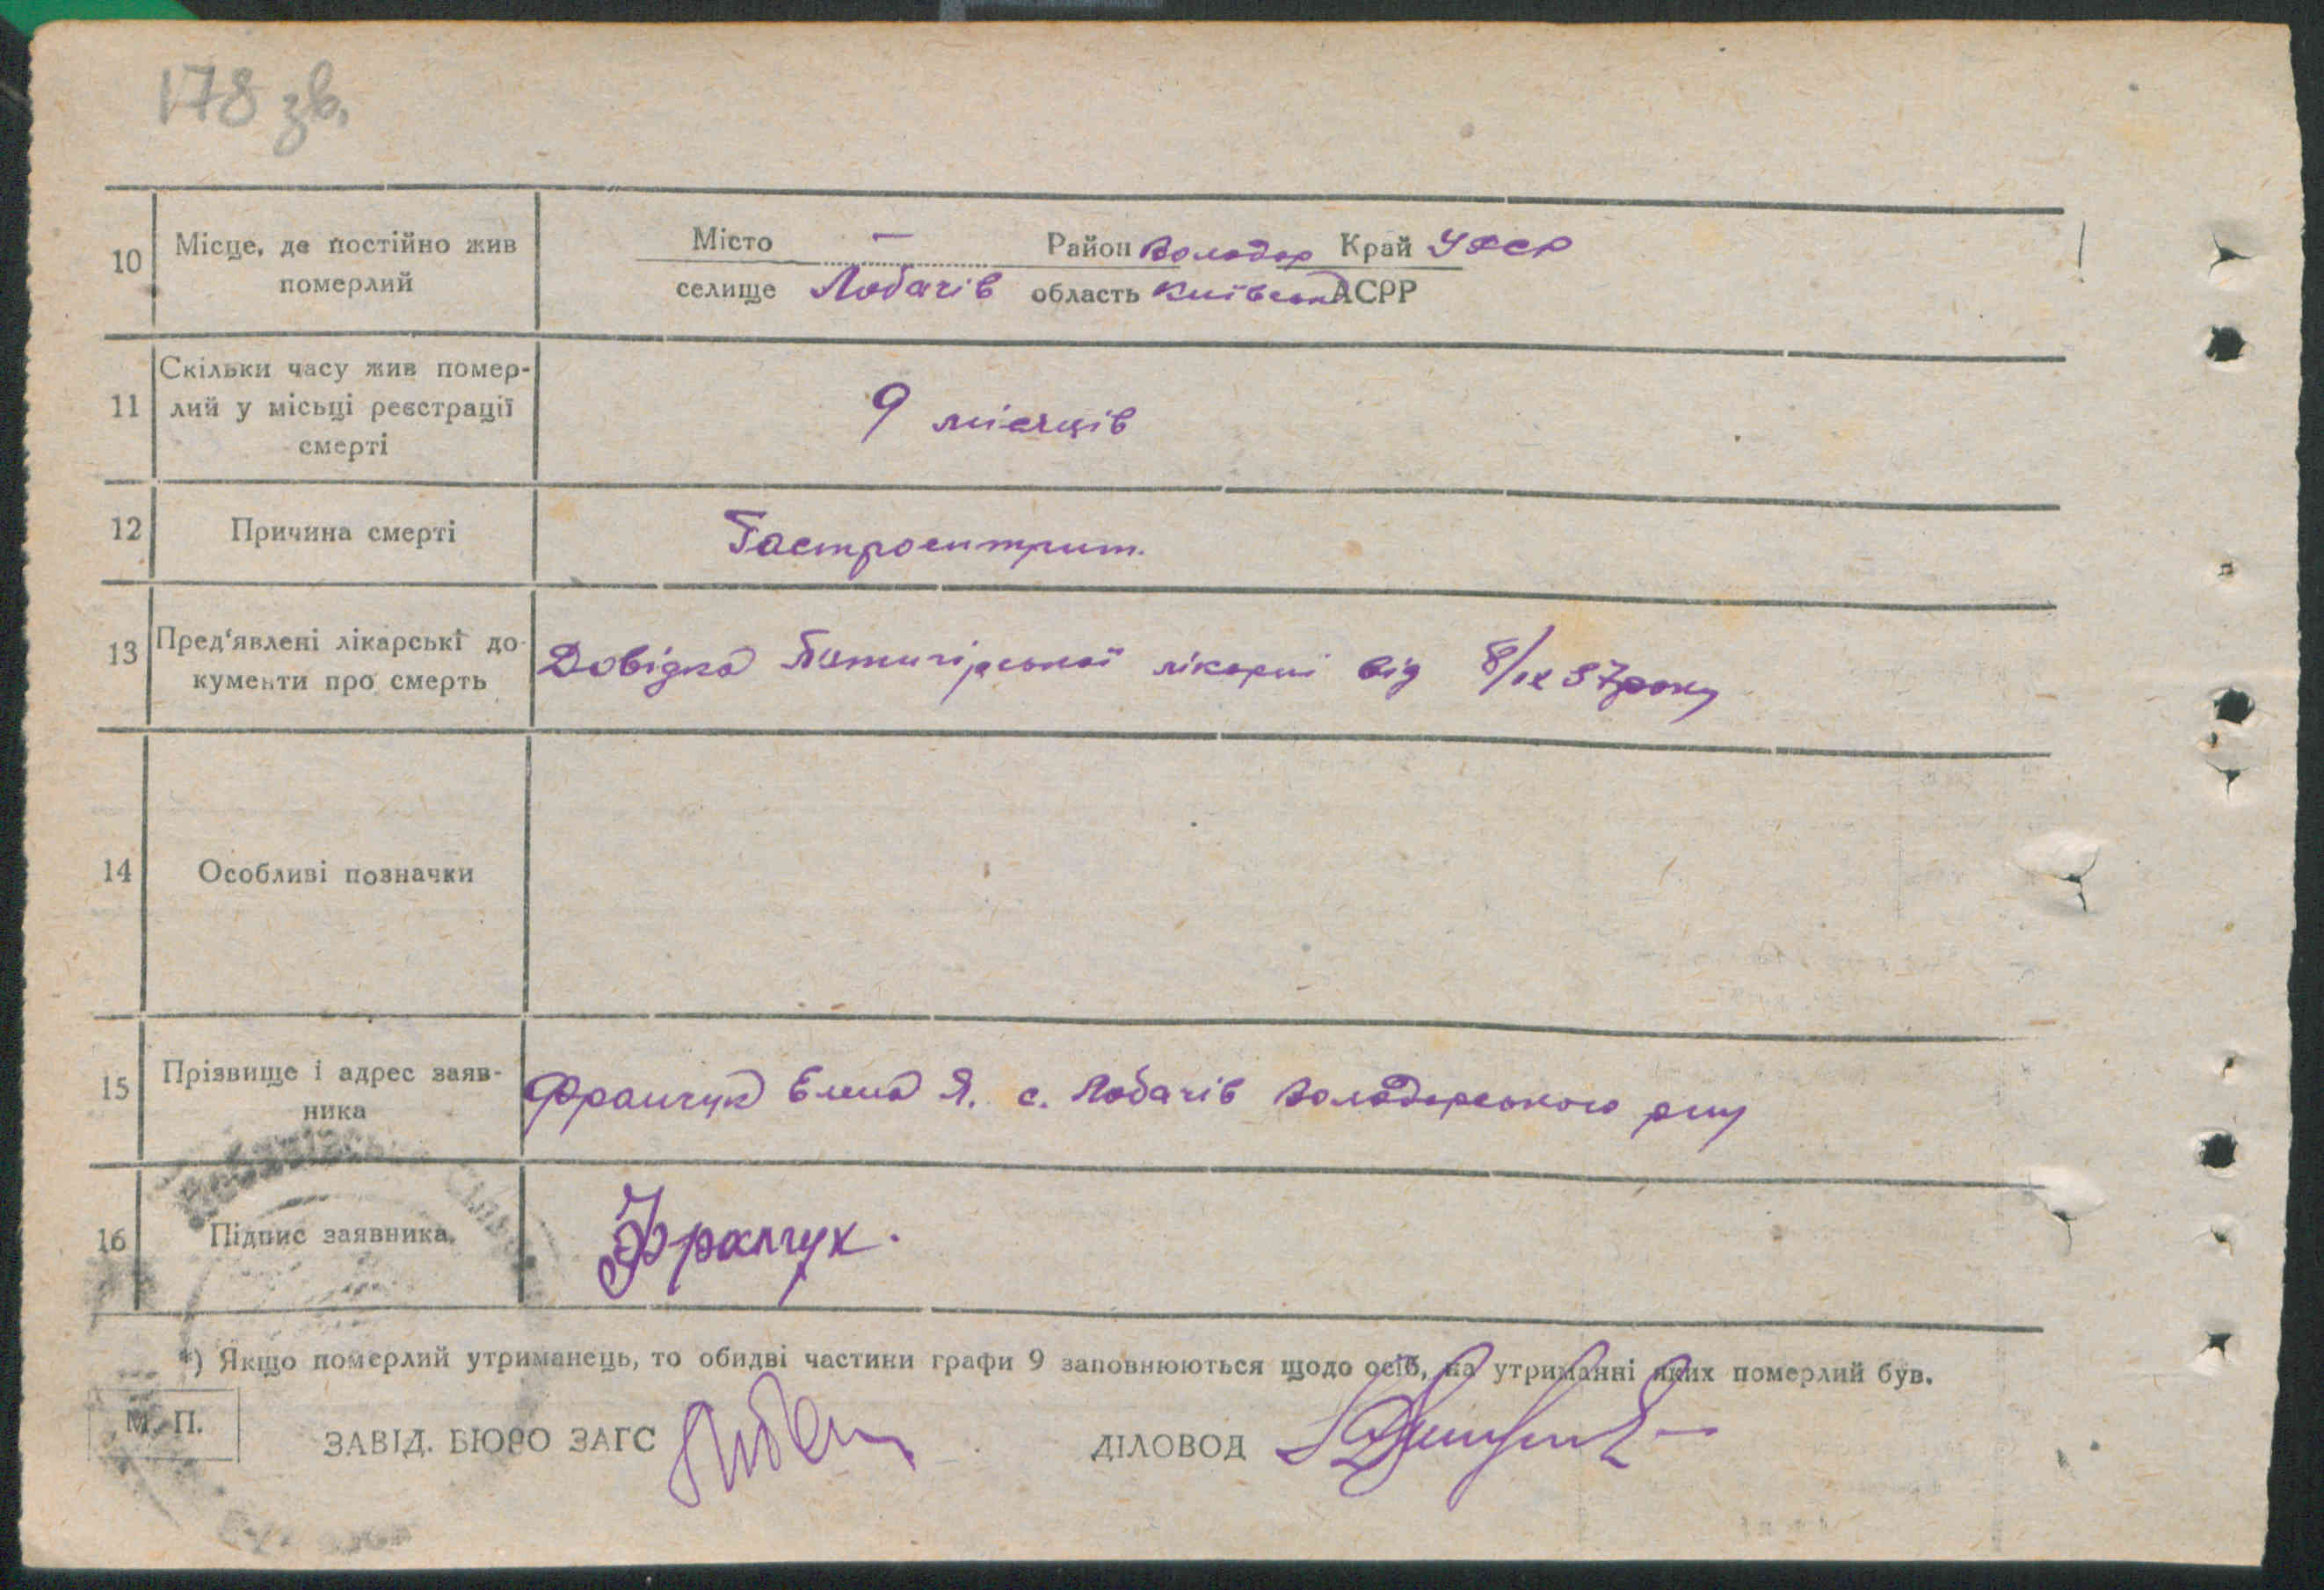 178 зв.
10 Місце, де постійно жив померлий
Місто — Район Володар Край УРСР
селище Лобачів область Київськ АСРР
11 Скільки часу жив помер-
лий у місьці реєстрації
смерті
9 місяців
12 Причина смерті
Гастроентрит.
13 Пред'явлені лікарські до-
кументи про смерть
Довідка Пятигірської лікарні від 8/IX 37 року
14 Особливі позначки
15 Прізвище і адрес заяв-
ника
Франчук Елена Я. с. Лобачів Володарського р-ну
16 Підпис заявника
Франчук.
*) Якщо померлий утриманець, то обидві частини графи 9 заповнюються щодо осіб, на утриманні яких померлий був.
М. П.
ЗАВІД. БЮРО ЗАГС
ДІЛОВОД